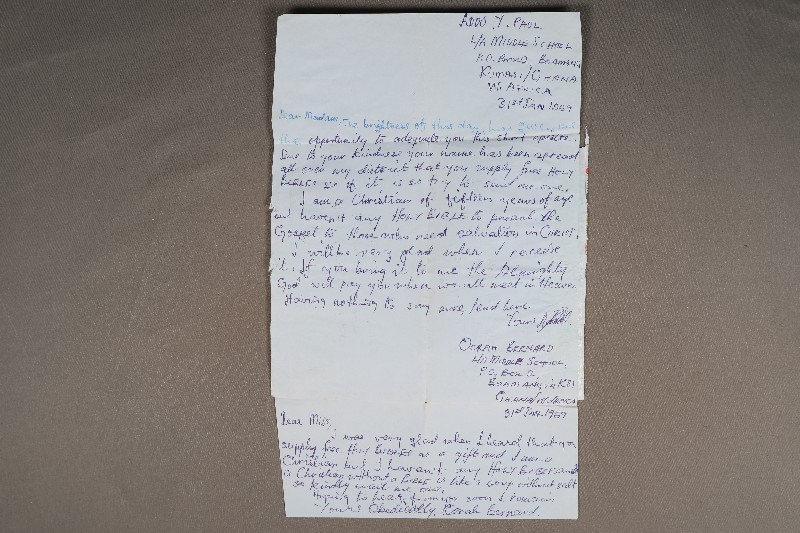 ADDO Y. PAUL
L/A MIDDLE SCHOOL
P.O. BOX 2,
KUMASI/GHANA
W. AFRICA
31st JAN 1969
Dear Madam, The brightness of this day has given me
the opportunity to adequate you this short
Due to your kindness your name has been spread
all over my district that you supply free HOLY
BIBLES so if it is so try to send me one.
I am a Christian of fifteen years of age
and haven't any HOLY BIBLE to preach the
Gospel to those who need salvation in CHRIST.
I will be very glad when I receive
it. If you bring it to me the Almighty
God will pay you when we all meet in Heaven.
Having nothing to say more, I end here.
Yours
OBRAH BERNARD
L/A MIDDLE SCHOOL,
P.O. BOX 2,
31st JAN. 1969
Dear Miss,
I was very glad when I heard that you
supply free HOLY BIBLES as a gift and I am a
Christian but I haven't any HOLY BIBLE and
a Christian without a BIBLE is like a soup without salt
so kindly mail me one.
Hoping to hear from you soon I remain
Yours Obediently, Bernard.